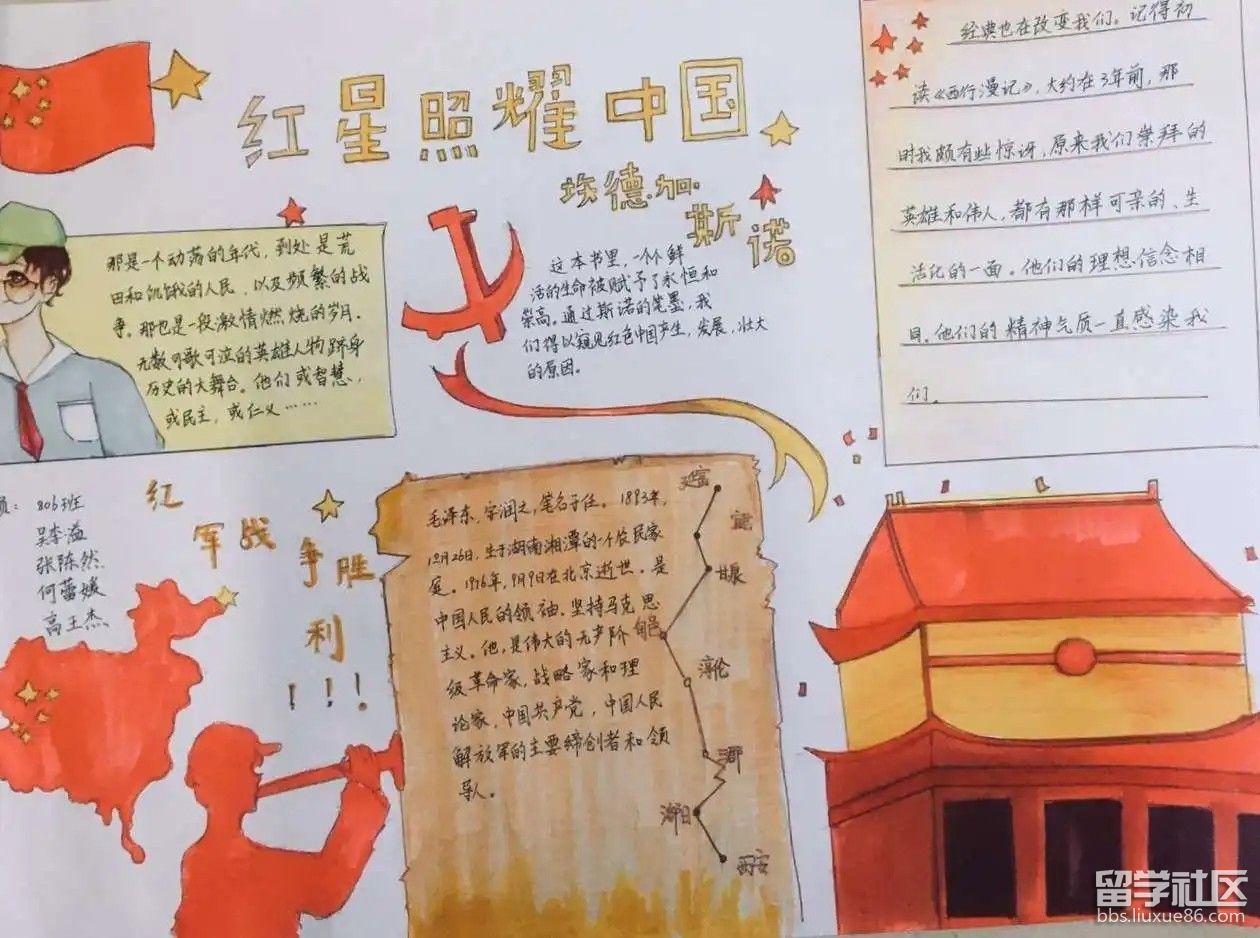 红星照耀中国
埃德加·斯诺
那是一个动荡的年代，到处是荒
田和饥饿的人民，以及频繁的战
争。那也是一段激情燃烧的岁月。
无数可歌可泣的英雄人物跻身
历史的大舞台。他们或智慧，
或民主，或仁义……
这本书里，一个个鲜
活的生命被赋予了永恒和
崇高。通过斯诺的笔墨，我
们得以窥见红色中国产生，发展，壮大
的原因。
经典也在改变我们。记得初
读《西行漫记》，大约在3年前，那
时我颇有些惊讶，原来我们崇拜的
英雄和伟人，都有那样可亲的、生
活化的一面。他们的理想信念相
目。他们的精神气质一直感染我
们。
员：806班
吴李溢
张陈然
何蕾媛
高王杰
红军战争胜利！！！
毛泽东，字润之，笔名子任。1893年，
12月26日，生于湖南湘潭的一个农民家
庭。1976年，9月9日在北京逝世。是
中国人民的领袖。坚持马克思
主义。他，是伟大的无产阶
级革命家，战略家和理
论家，中国共产党，中国人民
解放军的主要缔创者和领
导人。
延安
甘泉
洛川
西安
留学社区
bbs.liuxue86.com